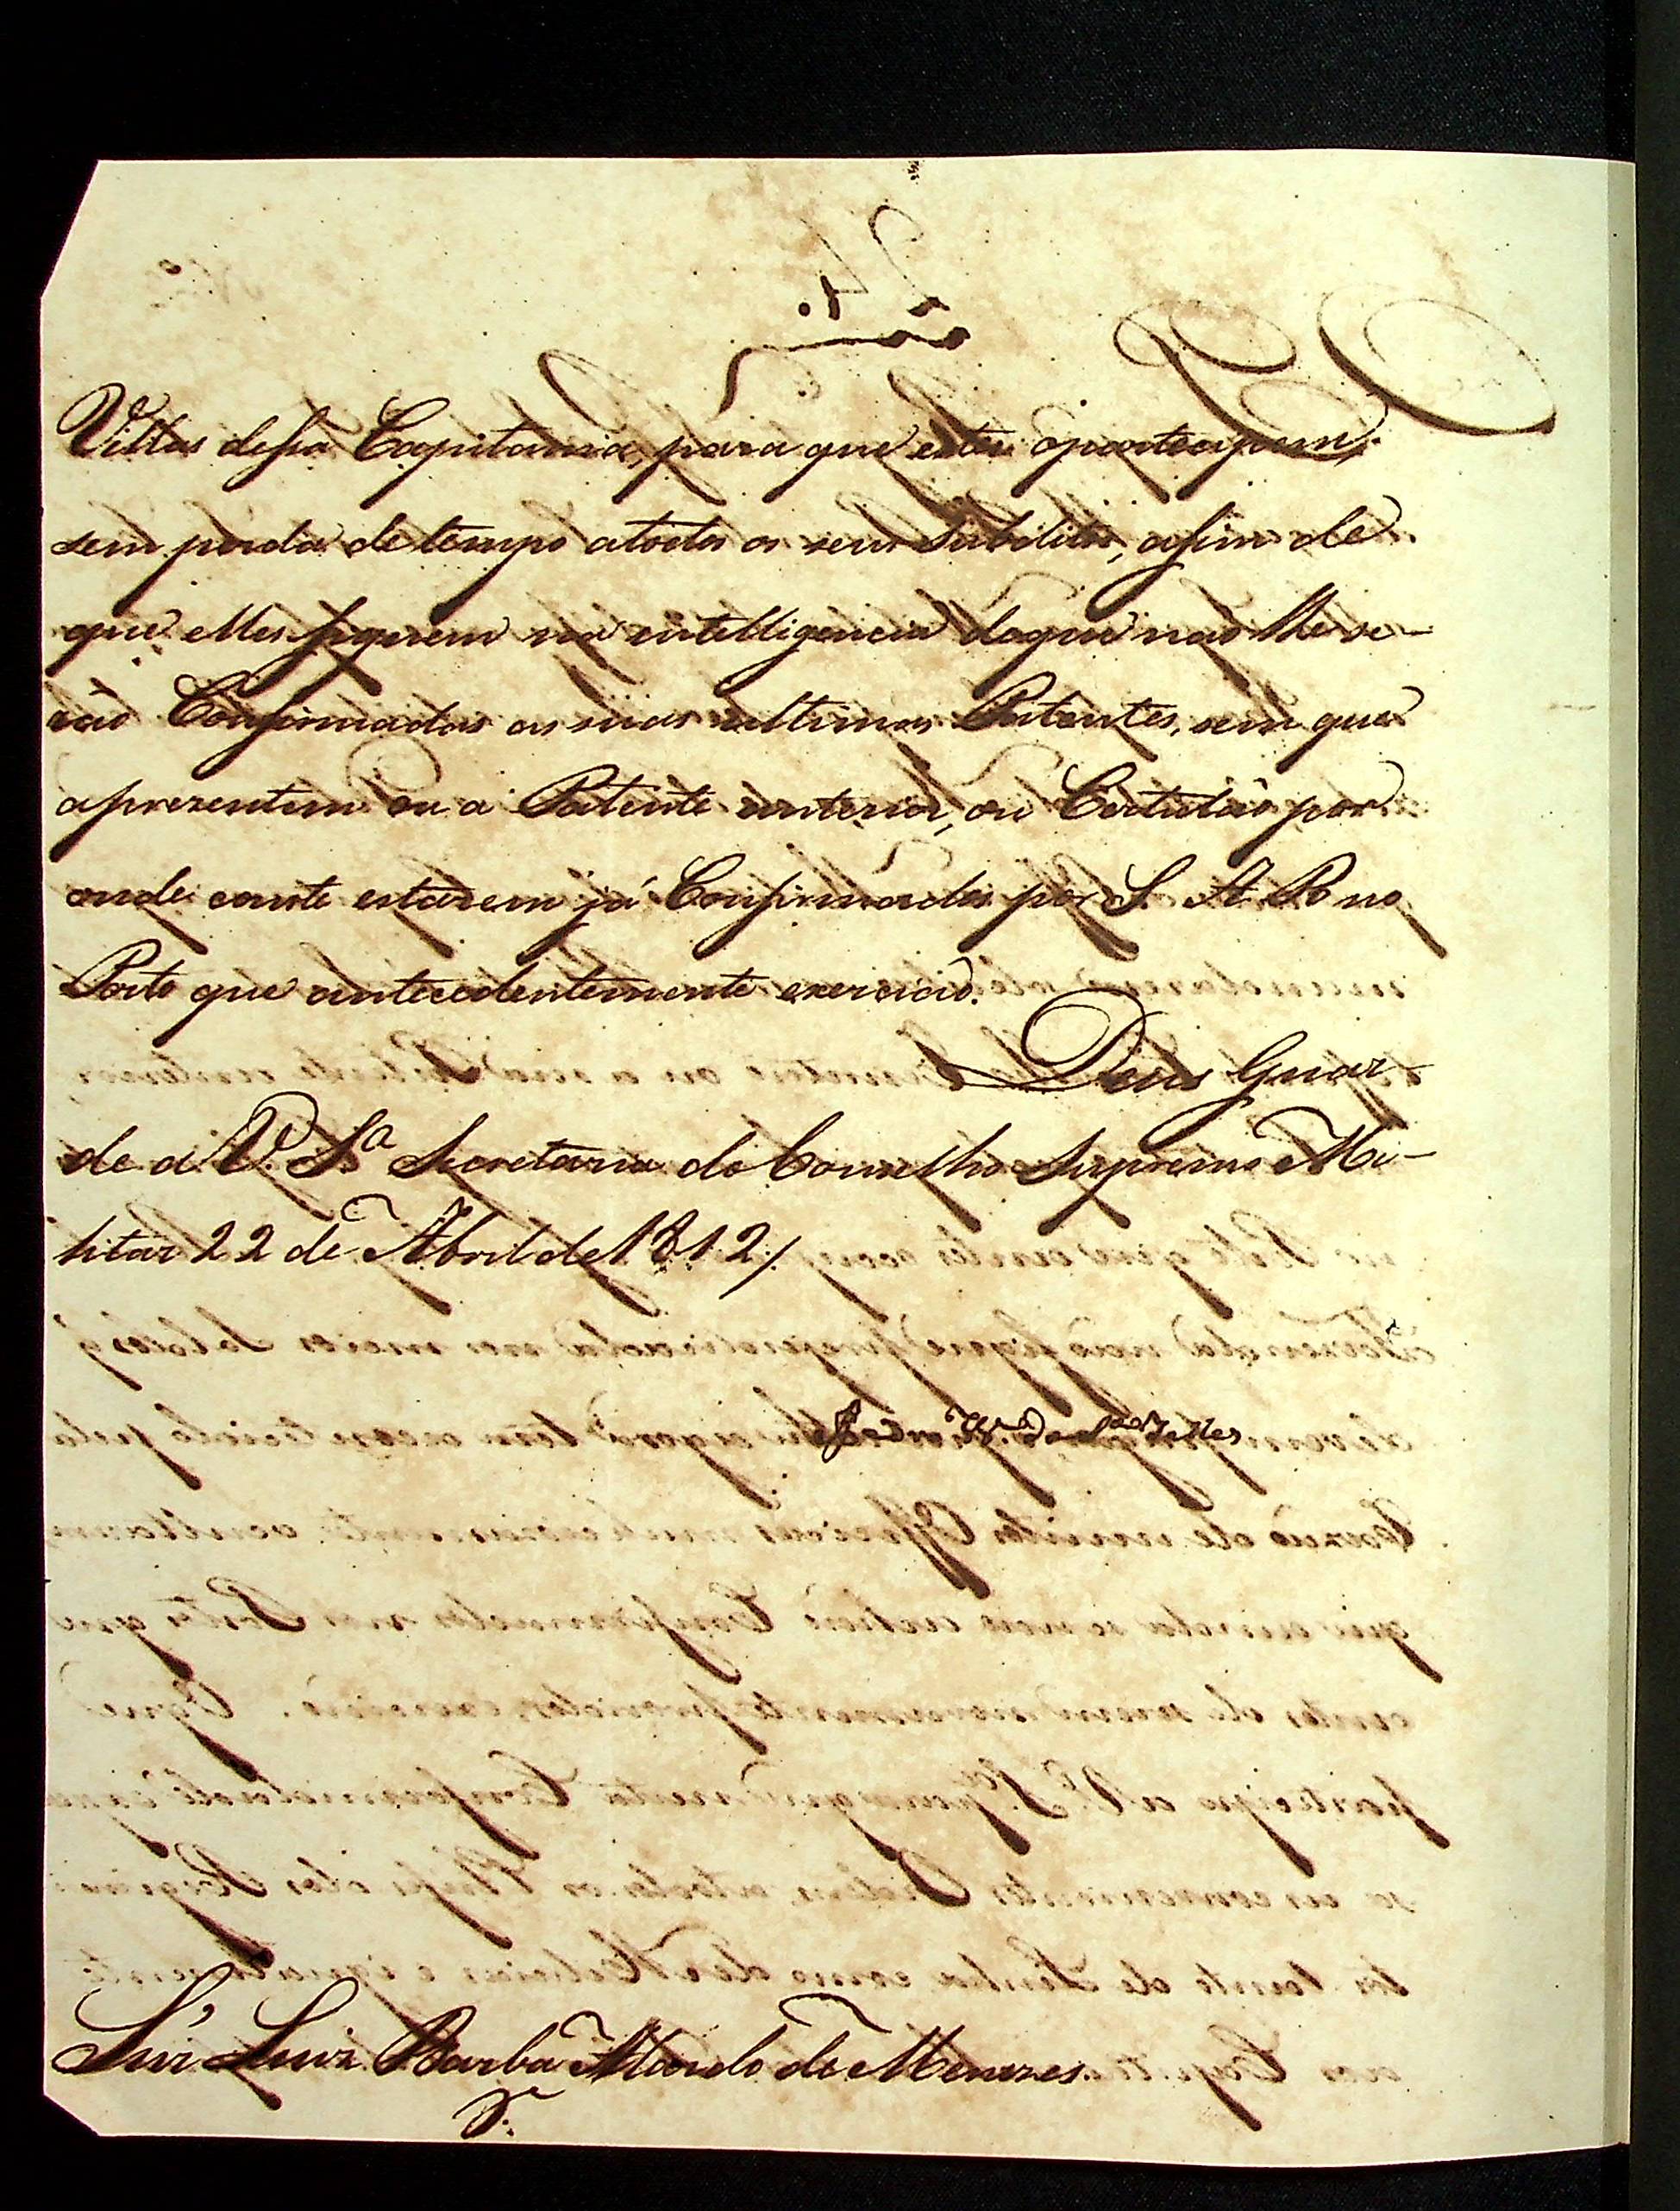 Villas dessa Capitania, para que estes oparticipem,
sem perda de tempo atodos os seus Subditos, afim de
que elles fiquem na intelligencia deque nao lhe se-
rão Confirmadas as suas ultimas Patentes, sem que
aprezentem ou a Patente anterior, ou Certidão por
onde conste estarem já Confirmados por S. A. R no
Posto que antecedentemente exercião.
Deus Guar-
de a V. Sª Secretaria do Conselho Supremo Mi-
litar 22 de Abril de 1812/
Pedro Vª da Sª Telles
Snr Luiz Barba Alardo de Menezes.